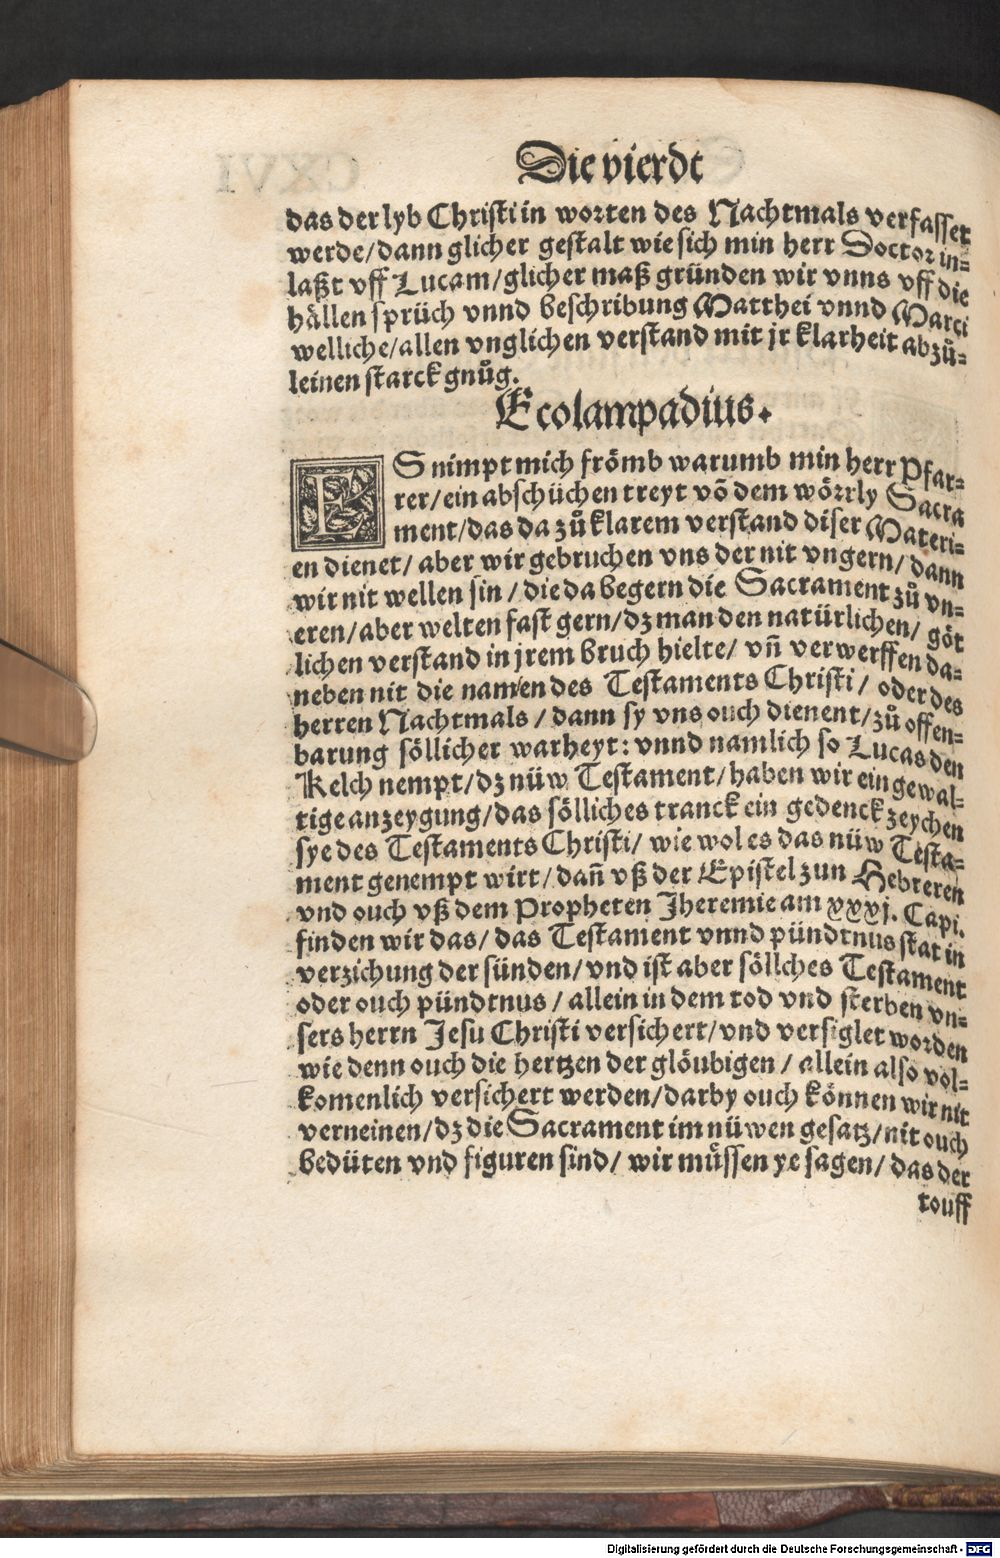 Die vierdt
das der lyb Christi in worten des Nachtmals verfasset
werde/dann glicher gestalt wie sich min herr Doctor in=
laßt vff Lucam/glicher maß gründen wir vnns vff die
hällen sprüch vnnd beschribung Matthei vnnd Marci
welliche/allen vnglichen verstand mit jr klarheit abzů=
leinen starck gnůg.
Ecolampadius.
ES nimpt mich frömb warumb min herr Pfar=
rer/ein abschüchen treyt võ dem wörrly Sacra
ment/das da zů klarem verstand diser Materi=
en dienet/ aber wir gebruchen vns der nit vngern/ dann
wir nit wellen sin / die da begern die Sacrament zů vn=
eren/aber welten fast gern/dz man den natürlichen/ göt
lichen verstand in jrem bruch hielte/ vñ verwerffen da=
neben nit die namen des Testaments Christi/ oder des
herren Nachtmals / dann sy vns ouch dienent/zů offen=
barung söllicher warheyt: vnnd namlich so Lucas den
Kelch nempt/dz nüw Testament/haben wir ein gewal=
tige anzeygung/das sölliches tranck ein gedenck zeychen
sye des Testaments Christi/ wie wol es das nüw Testa=
ment genempt wirt/ dañ vß der Epistel zun Hebreren
vnd ouch vß dem Propheten Jheremie am xxxj. Capi.
finden wir das/ das Testament vnnd pündtnus stat in
verzichung der sünden/ vnd ist aber söllches Testament
oder ouch pündtnus / allein in dem tod vnd sterben vn=
sers herrn Jesu Christi versichert/vnd versiglet worden
wie denn ouch die hertzen der glöubigen / allein also vol=
komenlich versichert werden/darby ouch können wir nit
verneinen/dz die Sacrament im nüwen gesatz/nit ouch
bedüten vnd figuren sind/ wir müssen ye sagen/ das der
touff
Digitalisierung gefördert durch die Deutsche Forschungsgemeinschaft - DFG